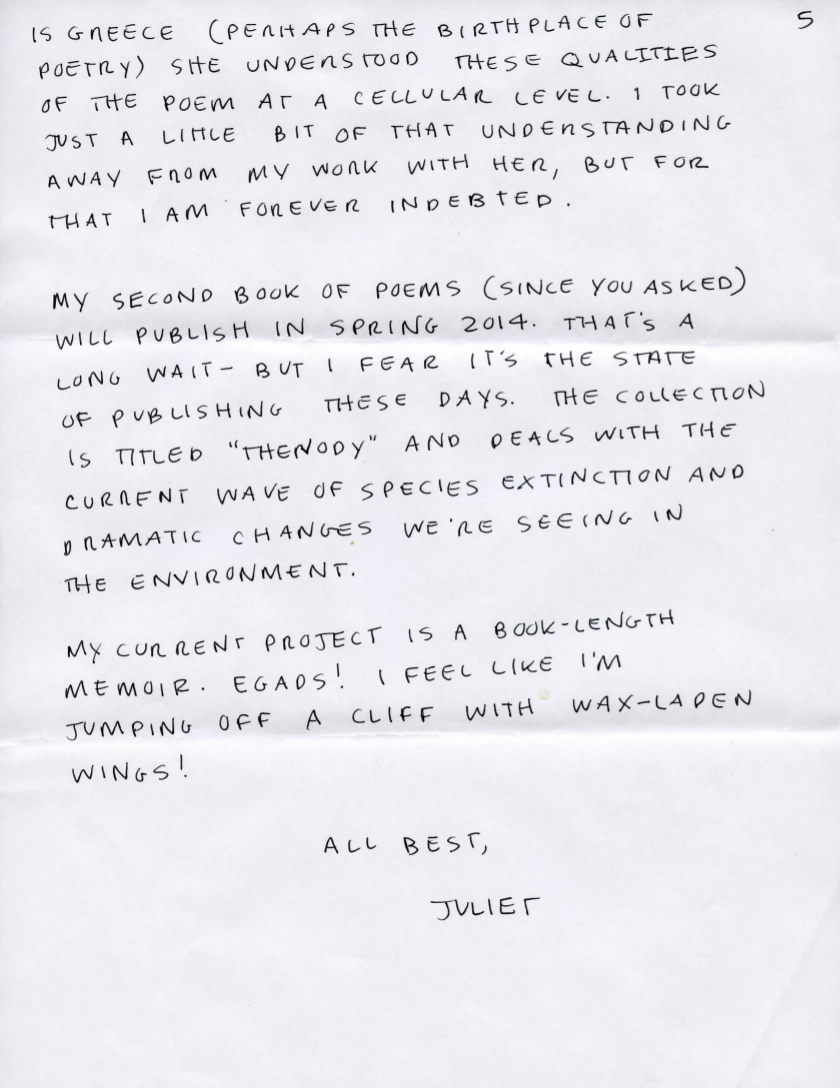 5
IS GREECE (PERHAPS THE BIRTHPLACE OF
POETRY) SHE UNDERSTOOD THESE QUALITIES
OF THE POEM AT A CELLULAR LEVEL. I TOOK
JUST A LITTLE BIT OF THAT UNDERSTANDING
AWAY FROM MY WORK WITH HER, BUT FOR
THAT I AM FOREVER INDEBTED.
MY SECOND BOOK OF POEMS (SINCE YOU ASKED)
WILL PUBLISH IN SPRING 2014. THAT'S A
LONG WAIT- BUT I FEAR IT'S THE STATE
OF PUBLISHING THESE DAYS. THE COLLECTION
IS TITLED "THERODY" AND DEALS WITH THE
CURRENT WAVE OF SPECIES EXTINCTION AND
DRAMATIC CHANGES WE'RE SEEING IN
THE ENVIRONMENT.
MY CURRENT PROJECT IS A BOOK-LENGTH
MEMOIR. EGADS! I FEEL LIKE I'M
JUMPING OFF A CLIFF WITH WAX-LADEN
WINGS!
ALL BEST,
JULIET